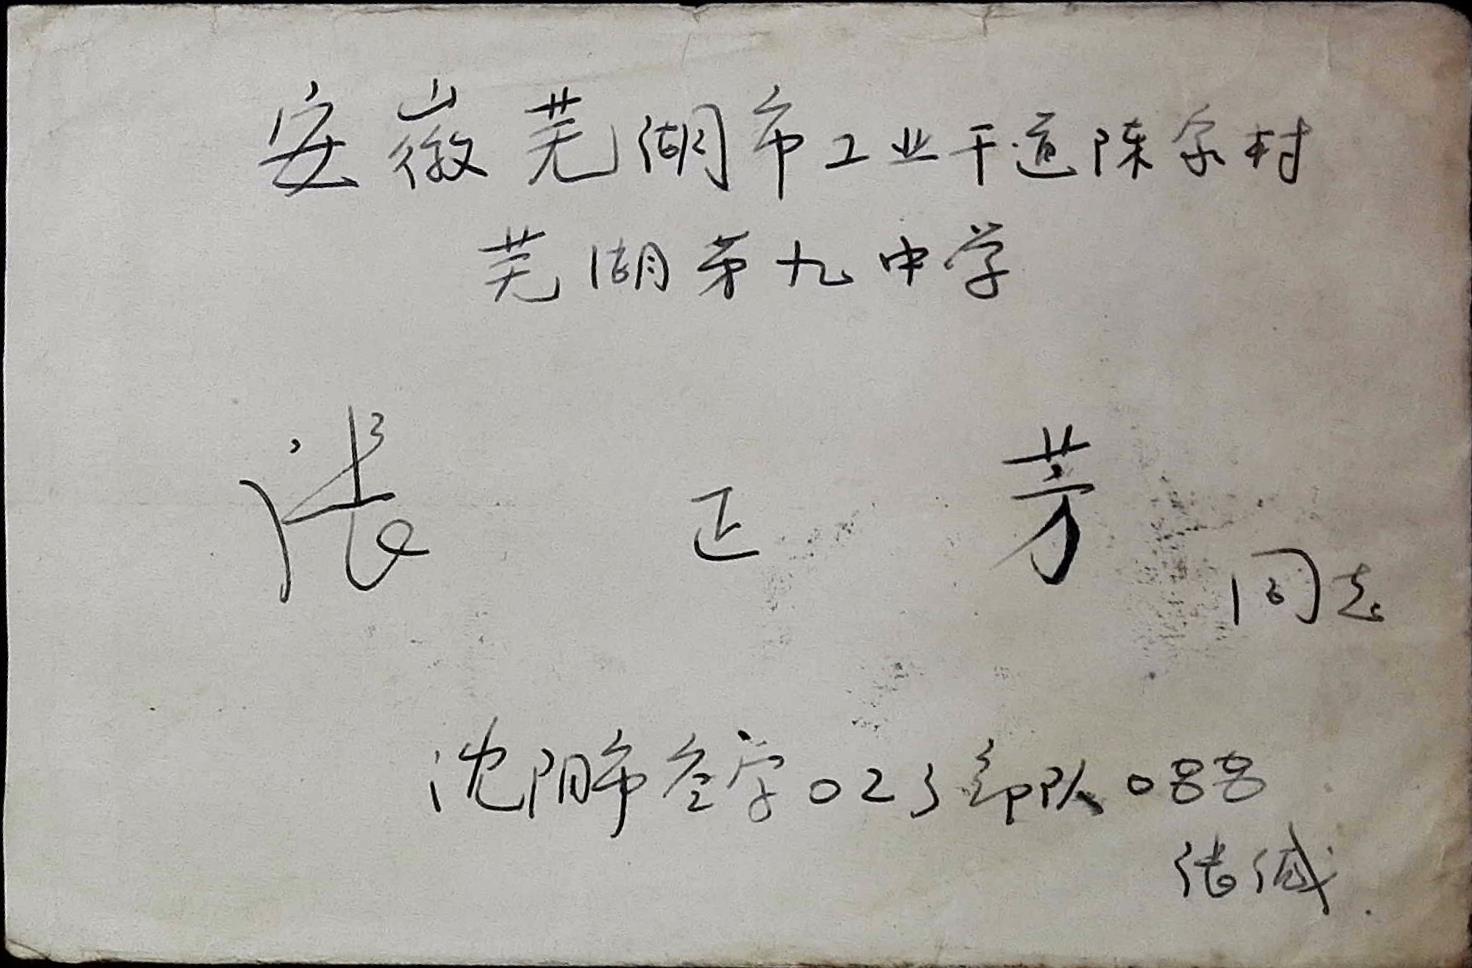 安徽芜湖市工业干道陈家村
芜湖第九中学
张正芳
同志
沈阳市空字023部队088
张缄